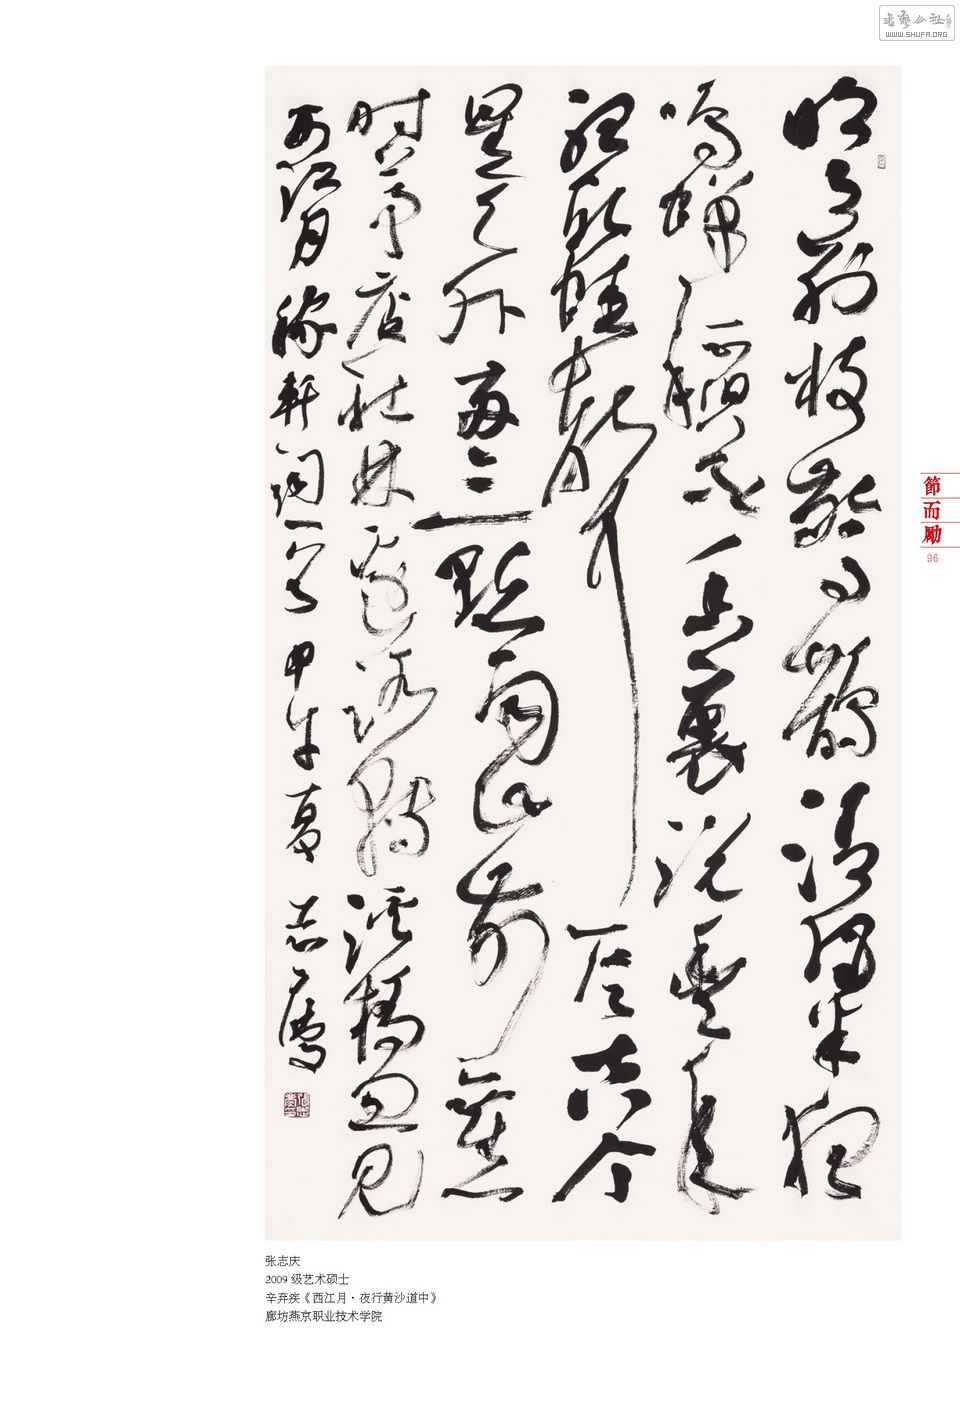 书艺公社
WWW.SHUFA.ORG
明月别枝驚鹊清風半夜
鳴蟬稻花香裏说豐年
聽取蛙聲一片七八个
星天外两三點雨山前舊
时茅店社林邊路轉溪橋忽見
西江月稼軒词一首甲午夏志慶
節而勵
96
张志庆
2009 级艺术硕士
辛弃疾《西江月·夜行黄沙道中》
廊坊燕京职业技术学院